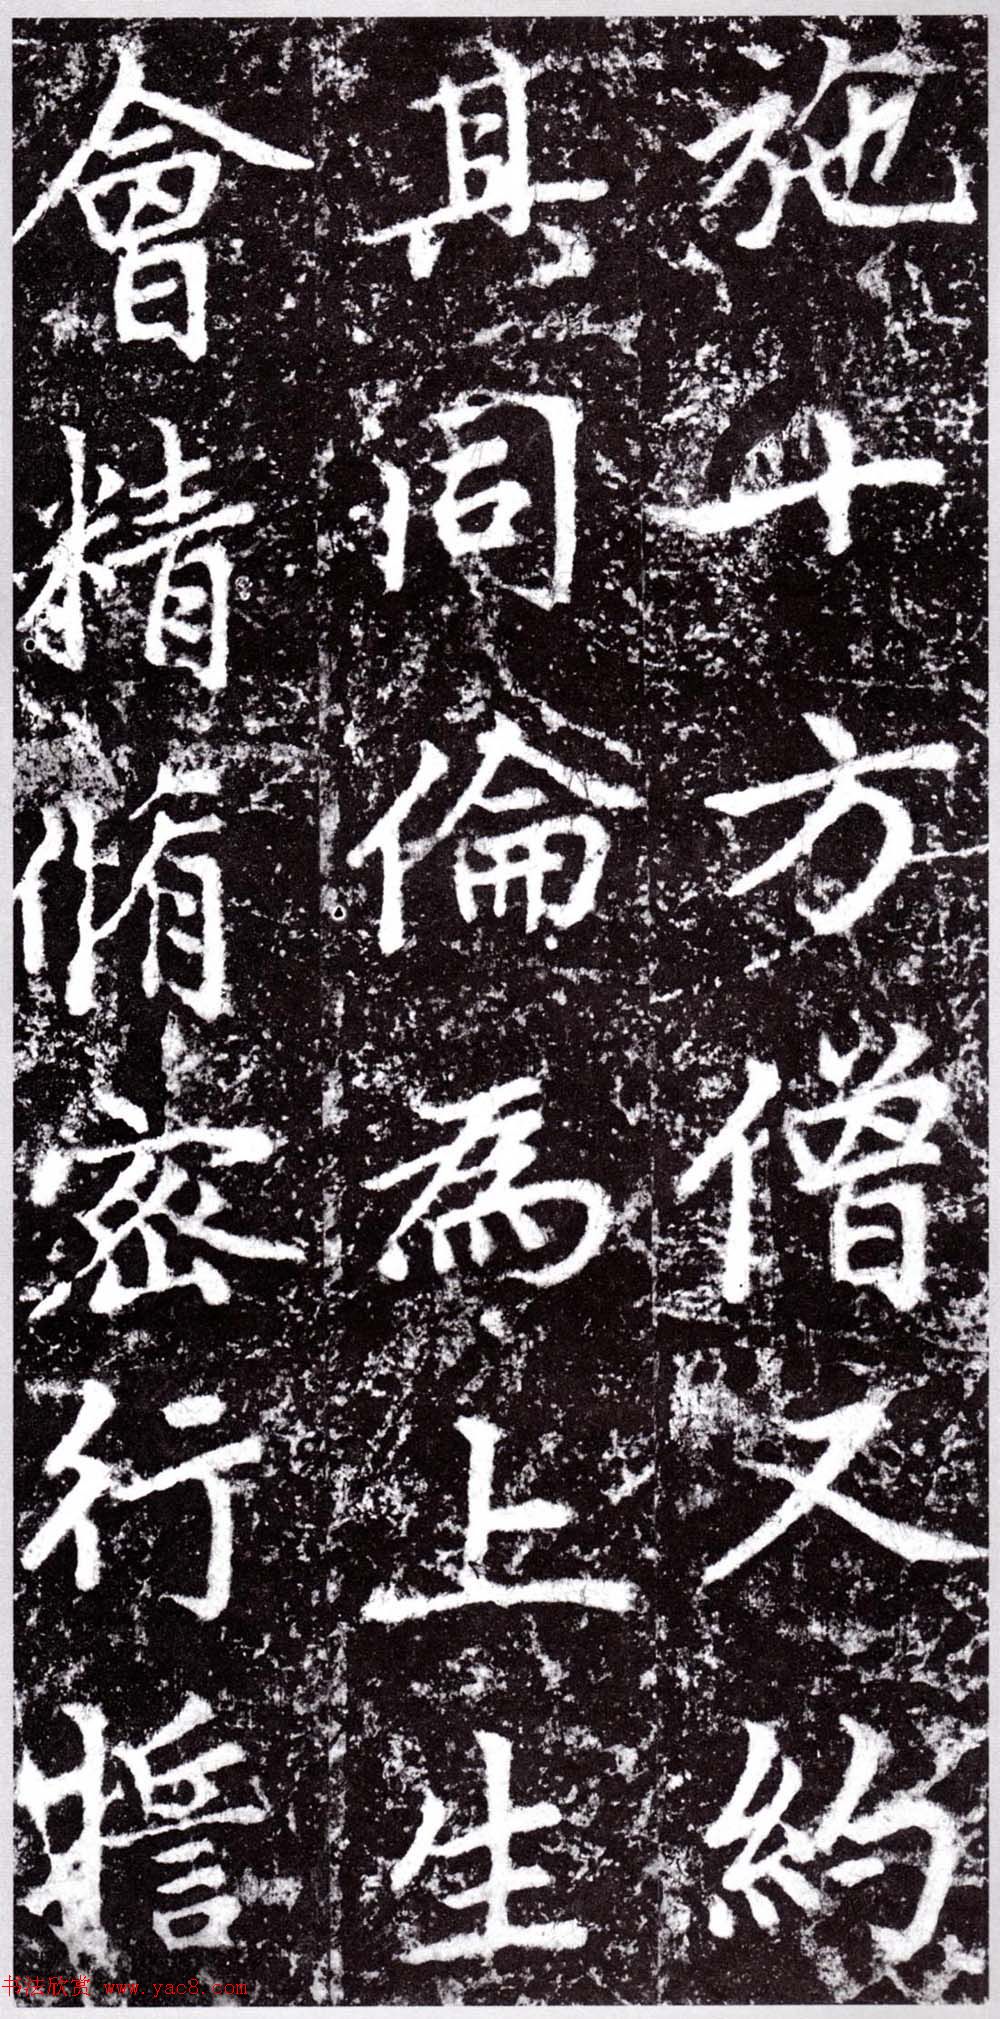 施十方僧又約
其同倫為上生
會精脩密行
书法欣赏 www.yac8.com